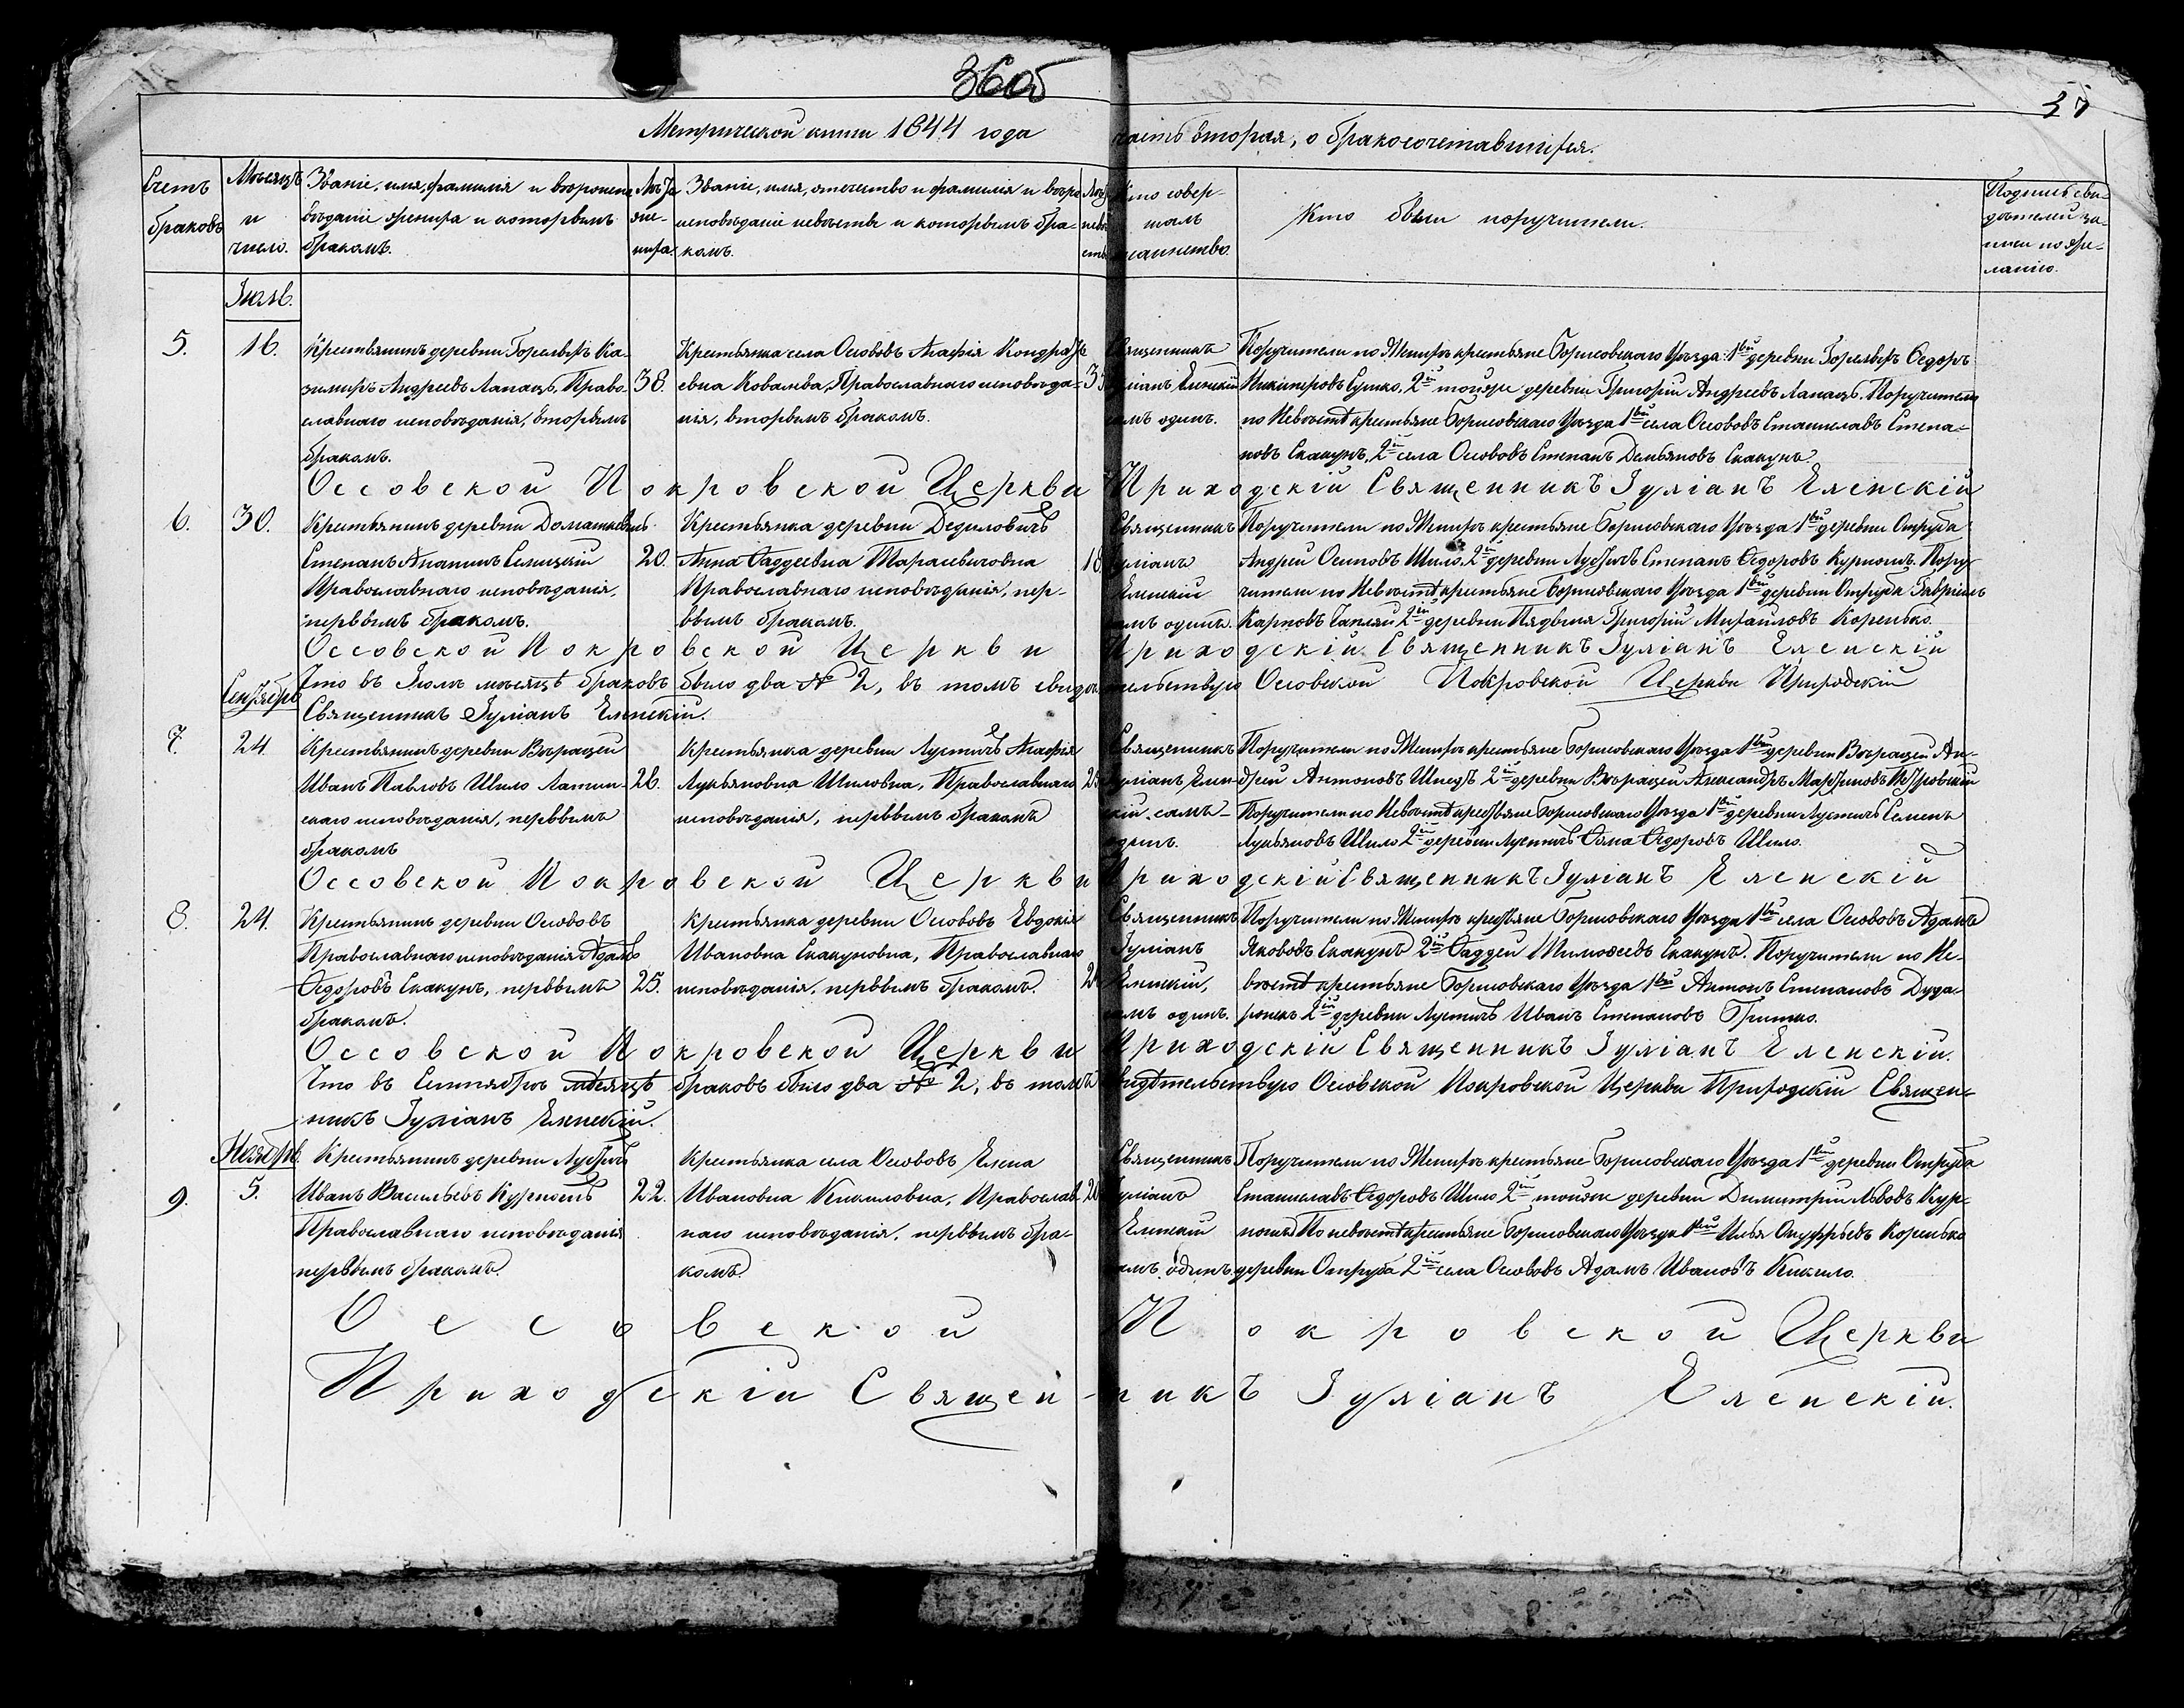 36об
37
Метрической книги 1844 года часть вторая, о бракосочетавшихся.
Счетъ браковъ
Мѣсяцъ и число.
Званіе, имя, фамилія и вѣроисповѣданіе жениха и которымъ бракомъ.
Лѣта жениха.
Званіе, имя, отечество и фамилія и вѣроисповѣданіе невѣсты и которымъ бракомъ.
Кто совершалъ таинство.
Кто были поручители.
Подпись свидѣтелей записи по желанію.
Іюль.
5.
16.
Крестьянинъ деревни Ка-
зимиръ Андреевъ Лапацъ, Право-
славнаго исповѣданія, вторымъ
бракомъ.
38.
Крестьянка села Оссововъ Агафія Кондрать
евна Ковалева, Православнаго исповѣда-
нія, вторымъ бракомъ.
Священникъ
Іуліанъ Еленскій
самъ одинъ.
Поручители по Женихѣ крестьяне Борисовскаго Уѣзда: 1вый деревни Ѳедоръ
Никипоровъ 2й тойже деревни Григорій Андреевъ Лапацъ. Поручители
по Невѣстѣ крестьяне Борисовскаго Уѣзда 1вый села Оссововъ Станиславъ Степа-
новъ Скакунъ, 2й села Оссововъ Степанъ Демьяновъ Скакунъ
Оссовской Покровской Церкви Приходскій Священникъ Іуліанъ Еленскій
6.
30.
Крестьянинъ деревни
Степанъ Селицкій
Православнаго исповѣданія,
первымъ бракомъ.
20.
Крестьянка деревни Дедиловичъ
Анна Ѳаддеевна Тарасевичовна
Православнаго исповѣданія, пер-
вымъ бракомъ.
18
Священникъ
Іуліанъ
Еленскій
самъ одинъ.
Поручители по Женихѣ крестьяне Борисовскаго Уѣзда 1вый деревни Отруба
Андрей Осиповъ Шило, 2й деревни Лустичъ Степанъ Ѳедоровъ Курношъ. Пору-
чители по Невѣстѣ крестьяне Борисовскаго Уѣзда 1вый деревни Отруба Гавріилъ
Карповъ Чапляй 2й деревни Григорій Михайловъ Коренько.
Оссовской Покровской Церкви Приходскій Священникъ Іуліанъ Еленскій
Что въ Іюлѣ мѣсяцѣ браковъ было два № 2, въ томъ свидѣтельствую Оссовской Покровской Церкви Приходскій
Священникъ Іуліанъ Еленскій.
Сентябрь
7.
24.
Крестьянинъ деревни Вѣрацѣй
Иванъ Павловъ Шило Латин-
скаго исповѣданія, первымъ
бракомъ
26.
Крестьянка деревни Лустичъ Агафія
Лукьяновна Шиловна, Православнаго
исповѣданія, первымъ бракомъ
Священникъ
Іуліанъ Елен-
скій самъ
одинъ.
Поручители по Женихѣ крестьяне Борисовскаго Уѣзда 1вый деревни Вѣрацѣй Ан-
дрей Антоновъ 2й деревни Вѣрацѣй Александръ
Поручители по Невѣстѣ крестьяне Борисовскаго Уѣзда 1вый деревни Лустичъ Семенъ
Лукьяновъ Шило 2й деревни Лустичъ Ѳома Ѳедоровъ Шило.
Оссовской Покровской Церкви Приходскій Священникъ Іуліанъ Еленскій
8.
24.
Крестьянинъ деревни Оссововъ
Православнаго исповѣданія Адамъ
Ѳедоровъ Скакунъ, первымъ
бракомъ.
25.
Крестьянка деревни Оссововъ Евдокія
Ивановна Скакуновна, Православнаго
исповѣданія, первымъ бракомъ.
Священникъ
Іуліанъ
Еленскій,
самъ одинъ.
Поручители по Женихѣ крестьяне Борисовскаго Уѣзда 1вый села Оссововъ Адамъ
Якововъ Скакунъ 2й Ѳаддей Тимоѳеевъ Скакунъ. Поручители по Не-
вѣстѣ крестьяне Борисовскаго Уѣзда 1вый Антонъ Степановъ Дуда-
ронекъ 2й деревни Лустичъ Иванъ Степановъ Гришко.
Оссовской Покровской Церкви Приходскій Священникъ Іуліанъ Еленскій.
Что въ Сентябрѣ мѣсяцѣ браковъ было два № 2, въ томъ свидѣтельствую Оссовской Покровской Церкви Приходскій Священ-
никъ Іуліанъ Еленскій.
Ноябрь.
9.
5.
Крестьянинъ деревни Лустичъ
Иванъ Васильевъ Курношъ
Православнаго исповѣданія
первымъ бракомъ.
22.
Крестьянка села Оссововъ Елена
Ивановна Кикиловна, Православ-
наго исповѣданія, первымъ бра-
комъ.
20
Священникъ
Іуліанъ
Еленскій
самъ одинъ.
Поручители по Женихѣ крестьяне Борисовскаго Уѣзда 1вый деревни Отруба
Станиславъ Ѳедоровъ Шило 2й тойже деревни Димитрій Львовъ Кур-
ношъ По невѣстѣ крестьяне Борисовскаго Уѣзда 1вый Илья Онуфрьевъ Коренько
деревни Отруба 2й села Оссововъ Адамъ Ивановъ Кикило.
Оссовской Покровской Церкви
Приходскій Священникъ Іуліанъ Еленскій.